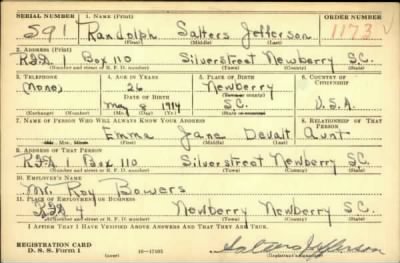 SERIAL NUMBER 1. NAME (Print) ORDER NUMBER
591 Randolph Salters Jefferson 1173 V
(First) (Middle) (Last)
2. ADDRESS (Print)
RFD 1 Box 110 Silverstreet Newberry S.C.
(Number and street or R. F. D. number) (Town) (County) (State)
3. TELEPHONE 4. AGE IN YEARS 5. PLACE OF BIRTH 6. COUNTRY OF CITIZENSHIP
(None) 26 Newberry
DATE OF BIRTH (Town or county)
May 8 1914 S.C. U.S.A.
(Exchange) (Number) (Mo.) (Day) (Yr.) (State or country)
7. NAME OF PERSON WHO WILL ALWAYS KNOW YOUR ADDRESS 8. RELATIONSHIP OF THAT PERSON
Emma Jane Devalt Aunt
(Mr., Mrs., Miss) (First) (Middle) (Last)
9. ADDRESS OF THAT PERSON
RFD 1 Box 110 Silverstreet Newberry S.C.
(Number and street or R. F. D. number) (Town) (County) (State)
10. EMPLOYER'S NAME
Mr. Roy Bowers
11. PLACE OF EMPLOYMENT OR BUSINESS
RFD 4 Newberry Newberry S.C.
(Number and street or R. F. D. number) (Town) (County) (State)
I AFFIRM THAT I HAVE VERIFIED ABOVE ANSWERS AND THAT THEY ARE TRUE.
REGISTRATION CARD
D. S. S. Form 1 (over) 16—17105 Salters Jefferson
(Registrant's signature)